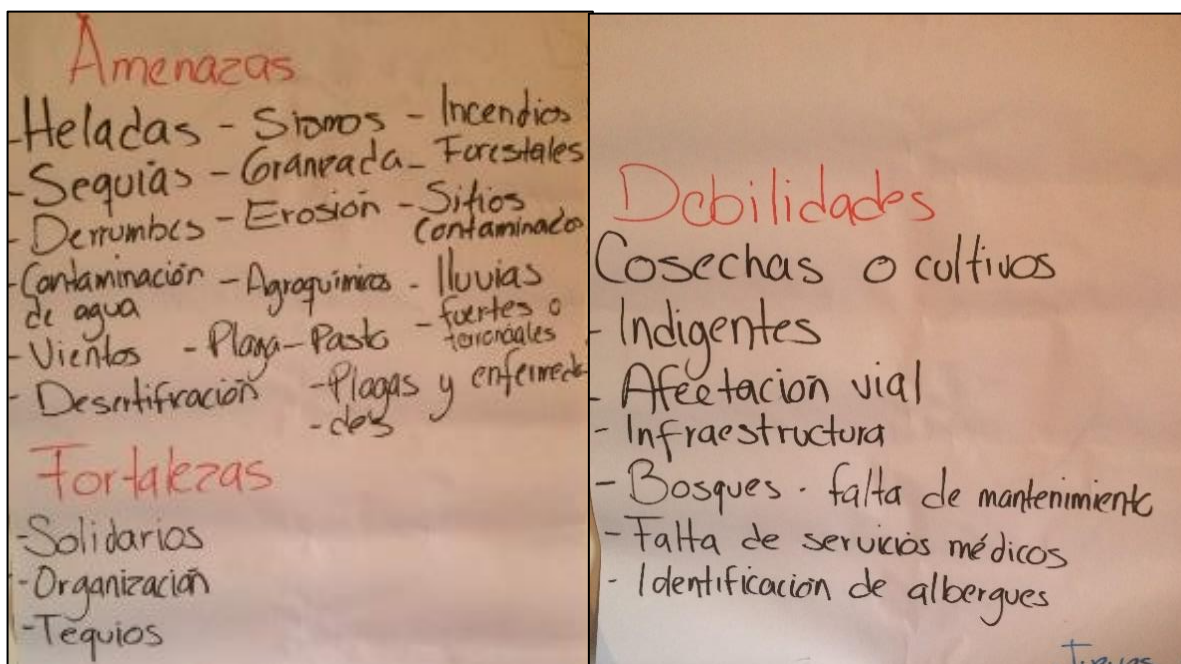 Amenazas
- Heladas - Sismos - Incendios
- Sequias - Granizada - Forestales
- Derrumbes - Erosión - Sitios
Contaminados
- Contaminación - Agroquimicos - lluvias
de agua - fuertes o
torrenciales
- Vientos - Plaga - Pasto
- Desertificación - Plagas y enfermeda
- des
Fortalezas
- Solidarios
- Organización
- Tequios
Debilidades
Cosechas o cultivos
- Indigentes
- Afectacion vial
- Infraestructura
- Bosques · falta de mantenimiento
- Falta de servicios médicos
- Identificacion de albergues